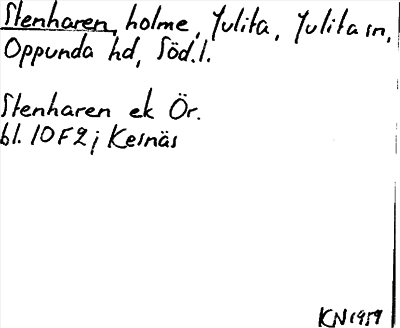 Stenharen, holme, Julita, Julita sn,
Oppunda hd, Söd.l.
Stenharen ek Ör.
bl. 10F2j Kesnäs
KN 1959